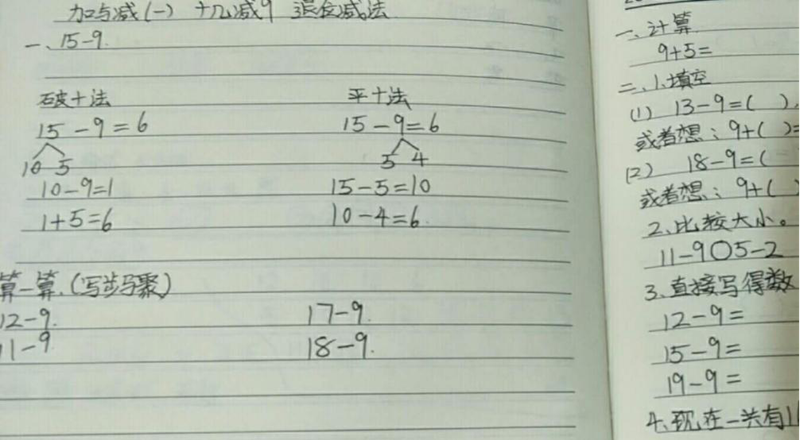 加与减(一) 十几减9 退位减法
一、15-9.
破十法
15-9=6
10 5
10-9=1
1+5=6
平十法
15-9=6
5 4
15-5=10
10-4=6.
算一算.(写步骤)
12-9.
11-9
17-9.
18-9.
一、计算
9+5=
二、1.填空
(1) 13-9=( ),
或者想: 9+( )=
(2) 18-9=(
或者想: 9+( )
2、比较大小。
11-9○5-2
3、直接写得数
12-9=
15-9=
19-9=
4、现在一共有11